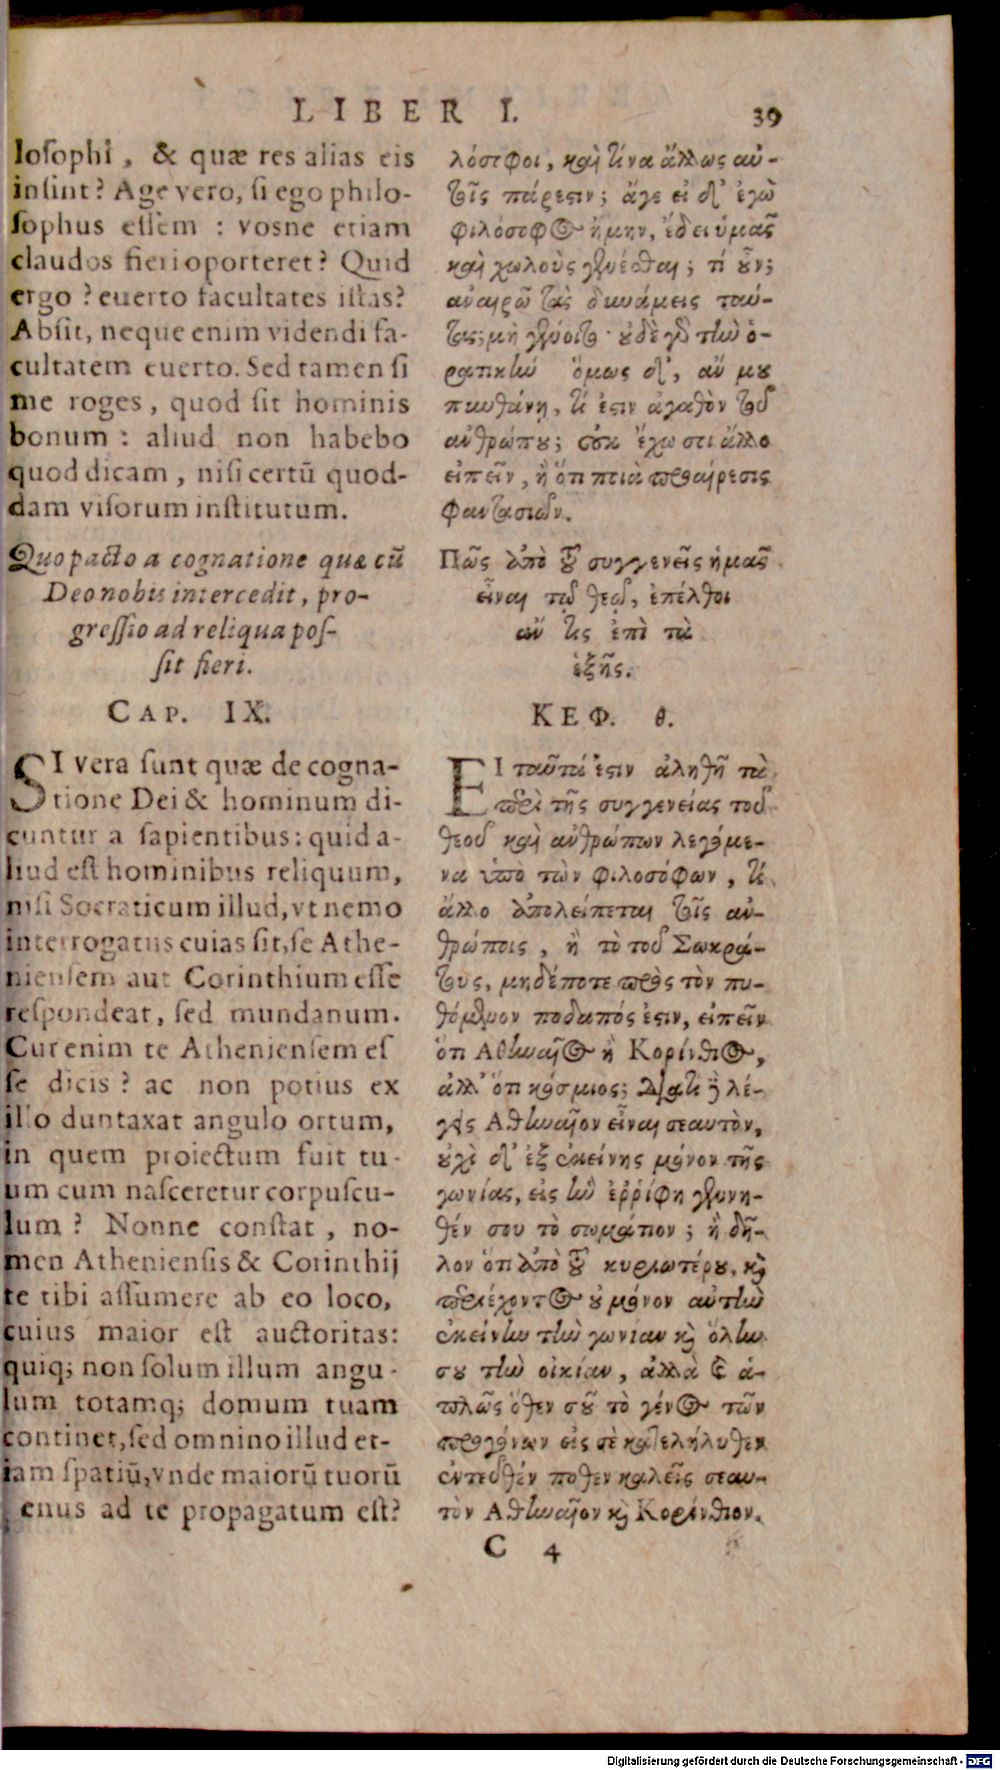 LIBER I. 39
losophi, & quæ res alias eis
insint? Age vero, si ego philo-
sophus essem : vosne etiam
claudos fieri oporteret? Quid
ergo ? euerto facultates istas?
Absit, neque enim videndi fa-
cultatem euerto. Sed tamen si
me roges, quod sit hominis
bonum : aliud non habebo
quod dicam, nisi certū quod-
dam visorum institutum.
Quo pacto a cognatione quæ cū
Deo nobis intercedit, pro-
gressio ad reliqua pos-
sit fieri.
CAP. IX.
SI vera sunt quæ de cogna-
tione Dei & hominum di-
cuntur a sapientibus: quid a-
liud est hominibus reliquum,
nisi Socraticum illud, vt nemo
interrogatus cuias sit, se Athe-
niensem aut Corinthium esse
respondeat, sed mundanum.
Cur enim te Atheniensem es
se dicis ? ac non potius ex
illo duntaxat angulo ortum,
in quem proiectum fuit tu-
um cum nasceretur corpuscu-
lum ? Nonne constat, no-
men Atheniensis & Corinthij
te tibi assumere ab eo loco,
cuius maior est auctoritas:
quiq; non solum illum angu-
lum totamq; domum tuam
continet, sed omnino illud et-
iam spatiū, vnde maiorū tuorū
genus ad te propagatum est?
λόσοφοι, καὶ τίνα ἄλλως αὐ-
τοῖς πάρεστιν; ἄγε εἰ δ' ἐγὼ
φιλόσοφος ἤμην, ἔδει ὑμᾶς
καὶ χωλοὺς γενέσθαι; τί οὖν;
αναιρῶ τὰς δυνάμεις ταύ-
τας; μὴ γένοιτο· οὐδὲ γὰρ τὴν ὁ-
ρατικὴν ὅμως δ', ἄν μου
πυνθάνῃ, τί ἐστιν ἀγαθὸν τοῦ
ἀνθρώπου; οὐκ ἔχω σοι ἄλλο
εἰπεῖν, ἢ ὅτι ποιὰ προαίρεσις
φαντασιῶν.
Πῶς ἀπὸ τοῦ συγγενεῖς ἡμᾶς
εἶναι τῷ θεῷ, ἐπέλθοι
ἄν τις ἐπὶ τὰ
ἑξῆς.
ΚΕΦ. θ.
ΕΙ ταῦτά ἐστιν ἀληθῆ τὰ
περὶ τῆς συγγενείας τοῦ
θεοῦ καὶ ἀνθρώπων λεγόμε-
να ὑπὸ τῶν φιλοσόφων, τί
ἄλλο ἀπολείπεται τοῖς ἀν-
θρώποις, ἢ τὸ τοῦ Σωκρά-
τους, μηδέποτε πρὸς τὸν πυ-
θόμενον ποδαπός ἐστιν, εἰπεῖν
ὅτι Αθηναῖος ἢ Κορίνθιος,
ἀλλ' ὅτι κόσμιος; Διατί γὰρ λέ-
γεις Αθηναῖον εἶναι σεαυτὸν,
οὐχὶ δ' ἐξ ἐκείνης μόνον τῆς
γωνίας, εἰς ἣν ἐρρίφη γεννη-
θέν σου τὸ σωμάτιον; ἢ δῆ-
λον ὅτι ἀπὸ τοῦ κυριωτέρου, καὶ
περιέχοντος οὐ μόνον αὐτὴν
ἐκείνην τὴν γωνίαν καὶ ὅλην
σου τὴν οἰκίαν, ἀλλὰ καὶ ἁ-
πλῶς ὅθεν σοῦ τὸ γένος τῶν
προγόνων εἰς σὲ κατελήλυθεν
ἐντεῦθέν ποθεν καλεῖς σεαυ-
τὸν Αθηναῖον καὶ Κορίνθιον.
C 4
Digitalisierung gefördert durch die Deutsche Forschungsgemeinschaft - DFG